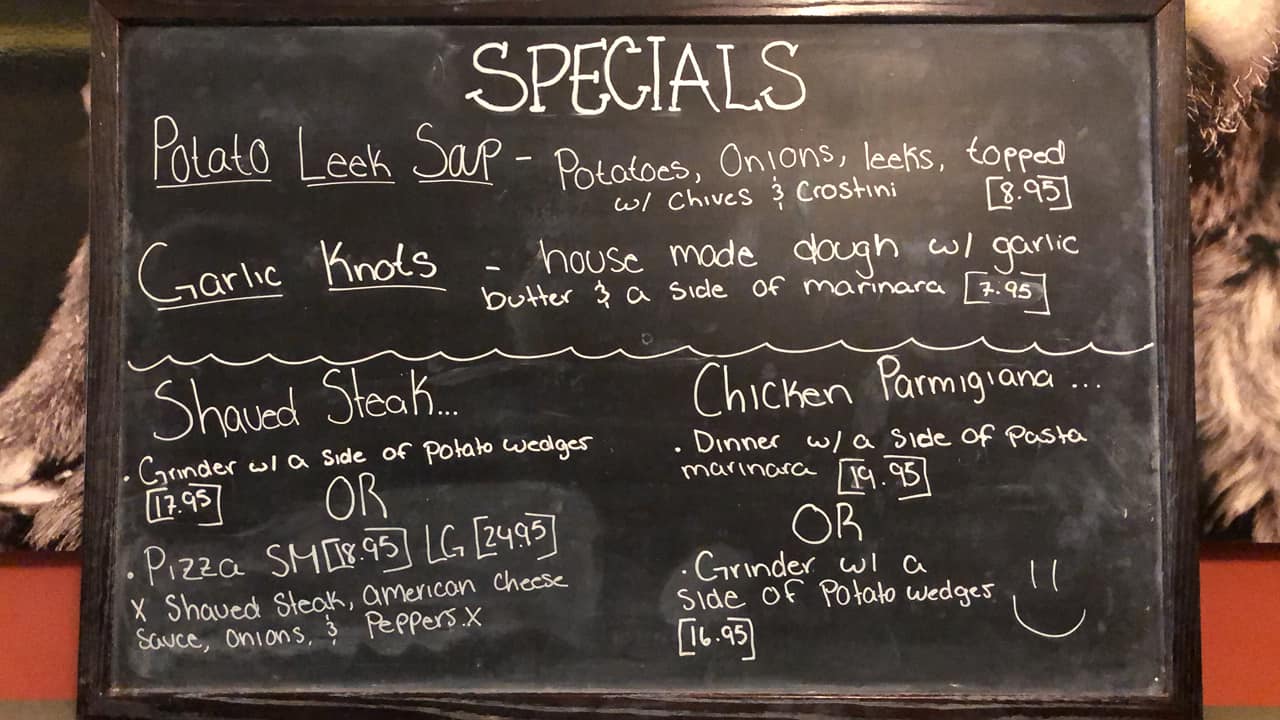 SPECIALS
Potato Leek Soup - Potatoes, Onions, leeks, topped
w/ Chives & Crostini [8.95]
Garlic Knots - house made dough w/ garlic
butter & a side of marinara [7.95]
Shaved Steak...
. Grinder w/ a side of Potato wedges
[17.95] OR
. Pizza SM [18.95] LG [24.95]
x Shaved Steak, american cheese
sauce, onions, & Peppers. x
Chicken Parmigiana ...
. Dinner w/ a side of pasta
marinara [19.95]
OR
. Grinder w/ a
side of Potato wedges
[16.95]